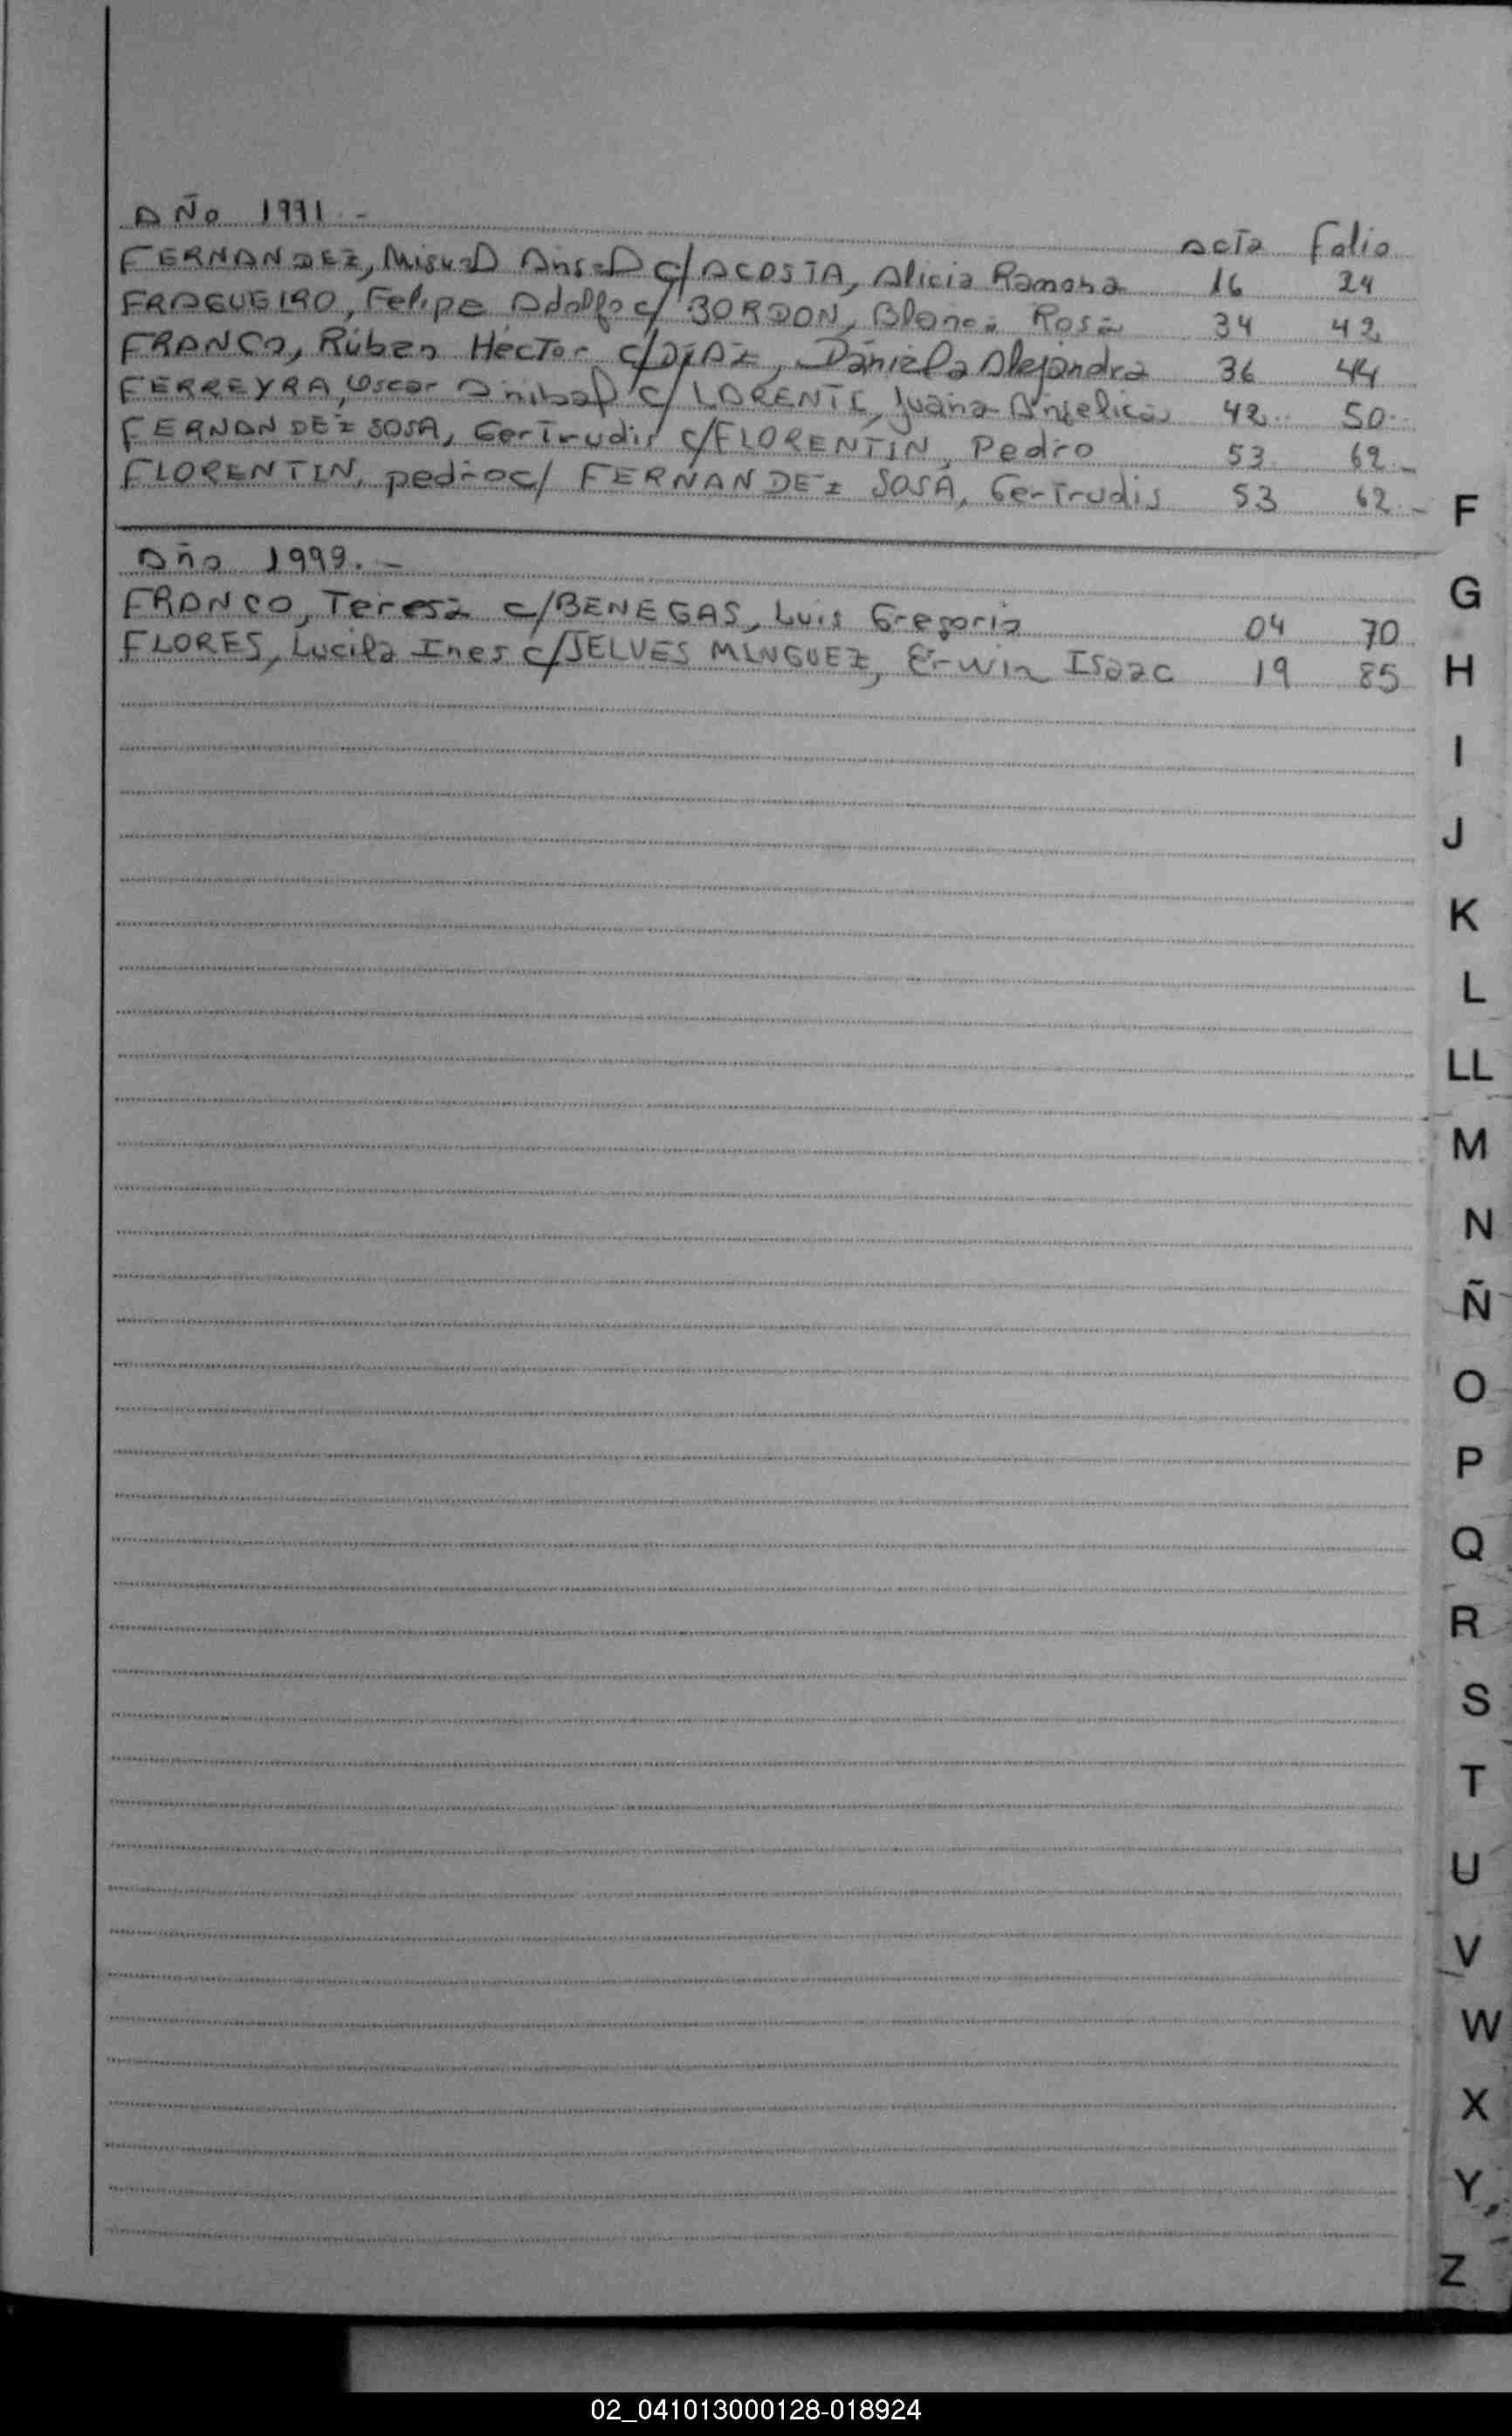 AÑo 1991.-
Acta Folio
FERNANDEZ, Miguel Angel c/ ACOSTA, Alicia Ramona 16 24
FRAGUEIRO, Felipe Adolfo c/ BORDON, Blanca Rosa 34 42
FRANCO, Rúben Héctor c/ DÍAZ, Daniela Alejandra 36 44
FERREYRA, Oscar Anibal c/ Juana Angelica 42 50
FERNANDEZ SOSA, Gertrudis c/ FLORENTIN, Pedro 53 62.-
FLORENTIN, pedro c/ FERNANDEZ SOSA, Gertrudis 53 62.-
Año 1999.-
FRANCO, Teresa c/ BENEGAS, Luis Gregorio 04 70
FLORES, Lucila Ines c/ JELVES MINGUEZ, Erwin Isaac 19 85
F
G
H
I
J
K
L
LL
M
N
Ñ
O
P
Q
R
S
T
U
V
W
X
Y
Z
02_041013000128-018924